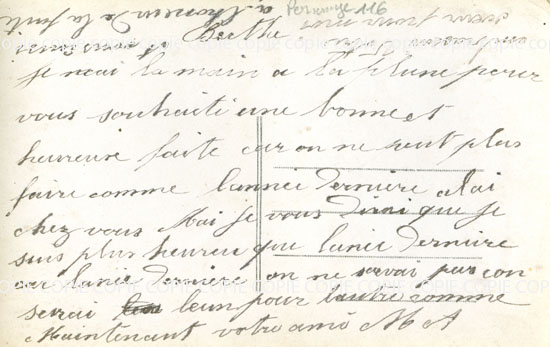 Personnage 116
à l'occasion de la faite
Berthe
je mai la main a la plume pour
vous souhaiti une bonne et
heureuse faite car on ne peut plus
faire comme lannei derniere alai
chez vous Moi je vous dirai que je
suis plus heureu que lanei derniere
car lanei derniere on ne savai pas con
serai leun pour lautre comme
Maintenant votre ami M A
COPIE COPIE COPIE COPIE COPIE COPIE